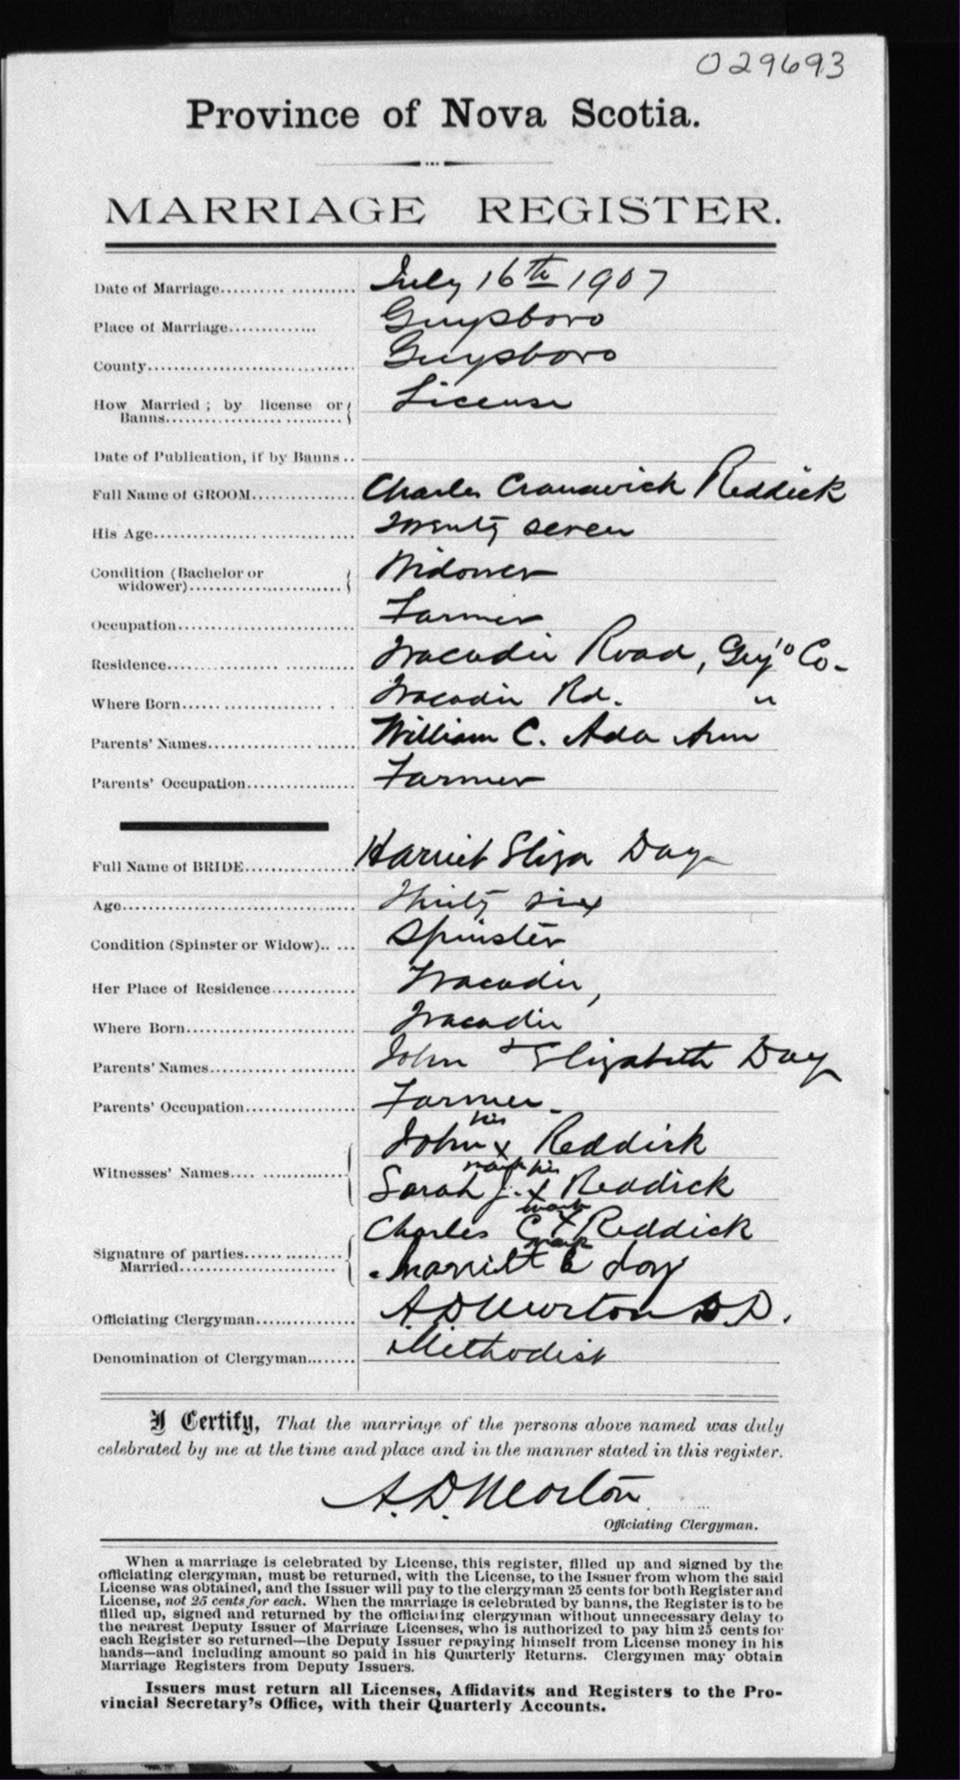 029693
Province of Nova Scotia.
MARRIAGE REGISTER.
Date of Marriage..................... July 16th 1907
Place of Marriage............. Guysboro
County............................... Guysboro
How Married ; by license or License
Banns...........................
Date of Publication, if by Banns ..
Full Name of GROOM............... Charles Cranswick Reddick
His Age............................... Twenty seven
Condition (Bachelor or Widower
widower).......................
Occupation........................... Farmer
Residence............................ Tracadie Road, Guy'o Co-
Where Born........................ Tracadie Rd. "
Parents' Names...................... William C. Ada Ann
Parents' Occupation................ Farmer
Full Name of BRIDE................. Harriet Eliza Day
Age................................... Thirty six
Condition (Spinster or Widow).. ... Spinster
Her Place of Residence............. Tracadie,
Where Born......................... Tracadie
Parents' Names...................... John & Elizabeth Day
Parents' Occupation................ Farmer
his
John x Reddick
mark his
Witnesses' Names.... ............. Sarah J. x Reddick
mark
Charles C x Reddick
Signature of parties............... mark
Married......................... Harriet E day
Officiating Clergyman............... A D Morton D D.
Denomination of Clergyman........ Methodist
I Certify, That the marriage of the persons above named was duly
celebrated by me at the time and place and in the manner stated in this register.
A. D. Morton
Officiating Clergyman.
When a marriage is celebrated by License, this register, filled up and signed by the
officiating clergyman, must be returned, with the License, to the Issuer from whom the said
License was obtained, and the Issuer will pay to the clergyman 25 cents for both Register and
License, not 25 cents for each. When the marriage is celebrated by banns, the Register is to be
filled up, signed and returned by the officiating clergyman without unnecessary delay to
the nearest Deputy Issuer of Marriage Licenses, who is authorized to pay him 25 cents for
each Register so returned—the Deputy Issuer repaying himself from License money in his
hands—and including amount so paid in his Quarterly Returns. Clergymen may obtain
Marriage Registers from Deputy Issuers.
Issuers must return all Licenses, Affidavits and Registers to the Pro-
vincial Secretary's Office, with their Quarterly Accounts.